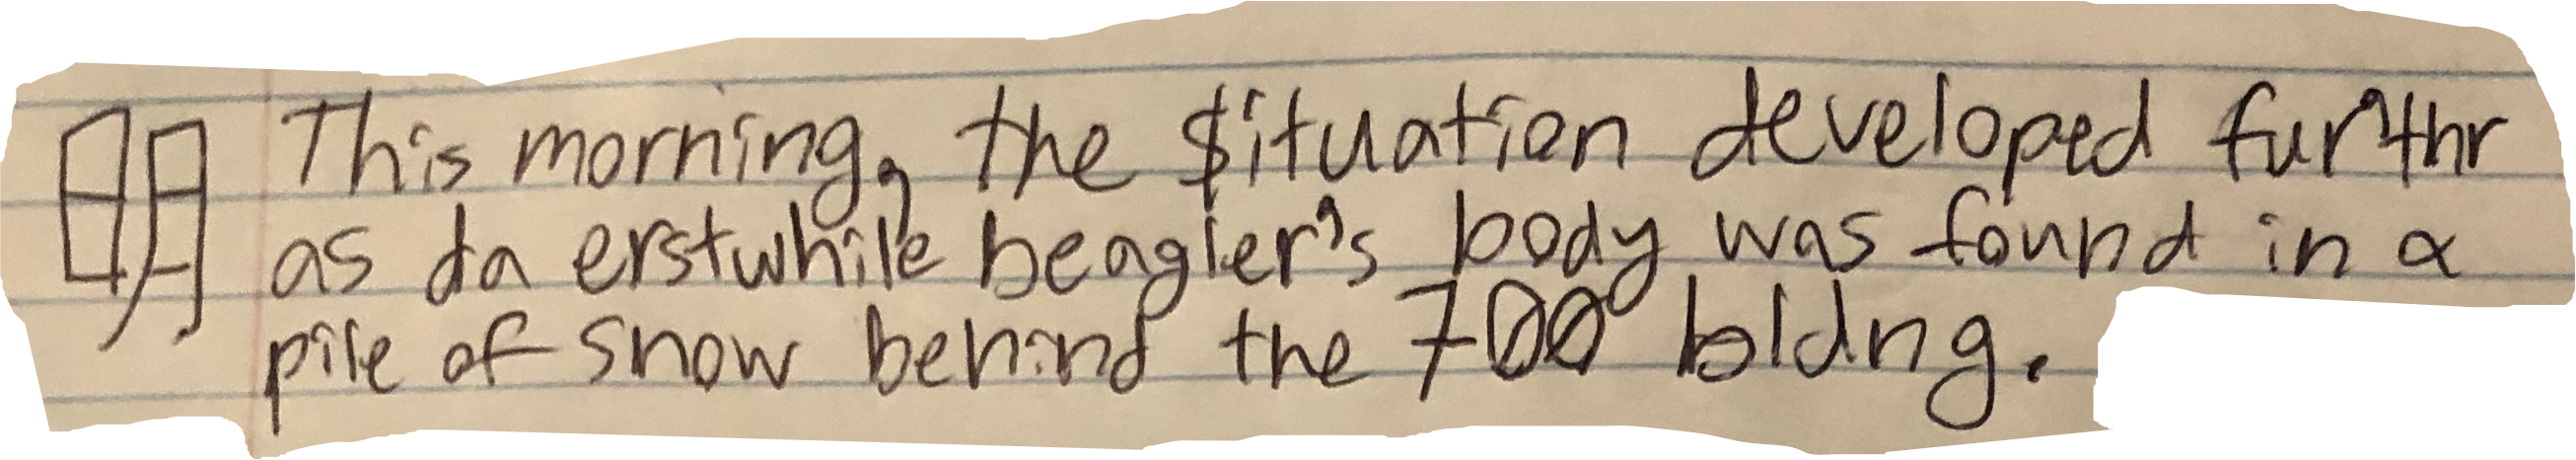 明 This morning, the $ituation developed furthr
as da erstwhile beagler's body was found in a
pile of snow behind the 700 bldng.